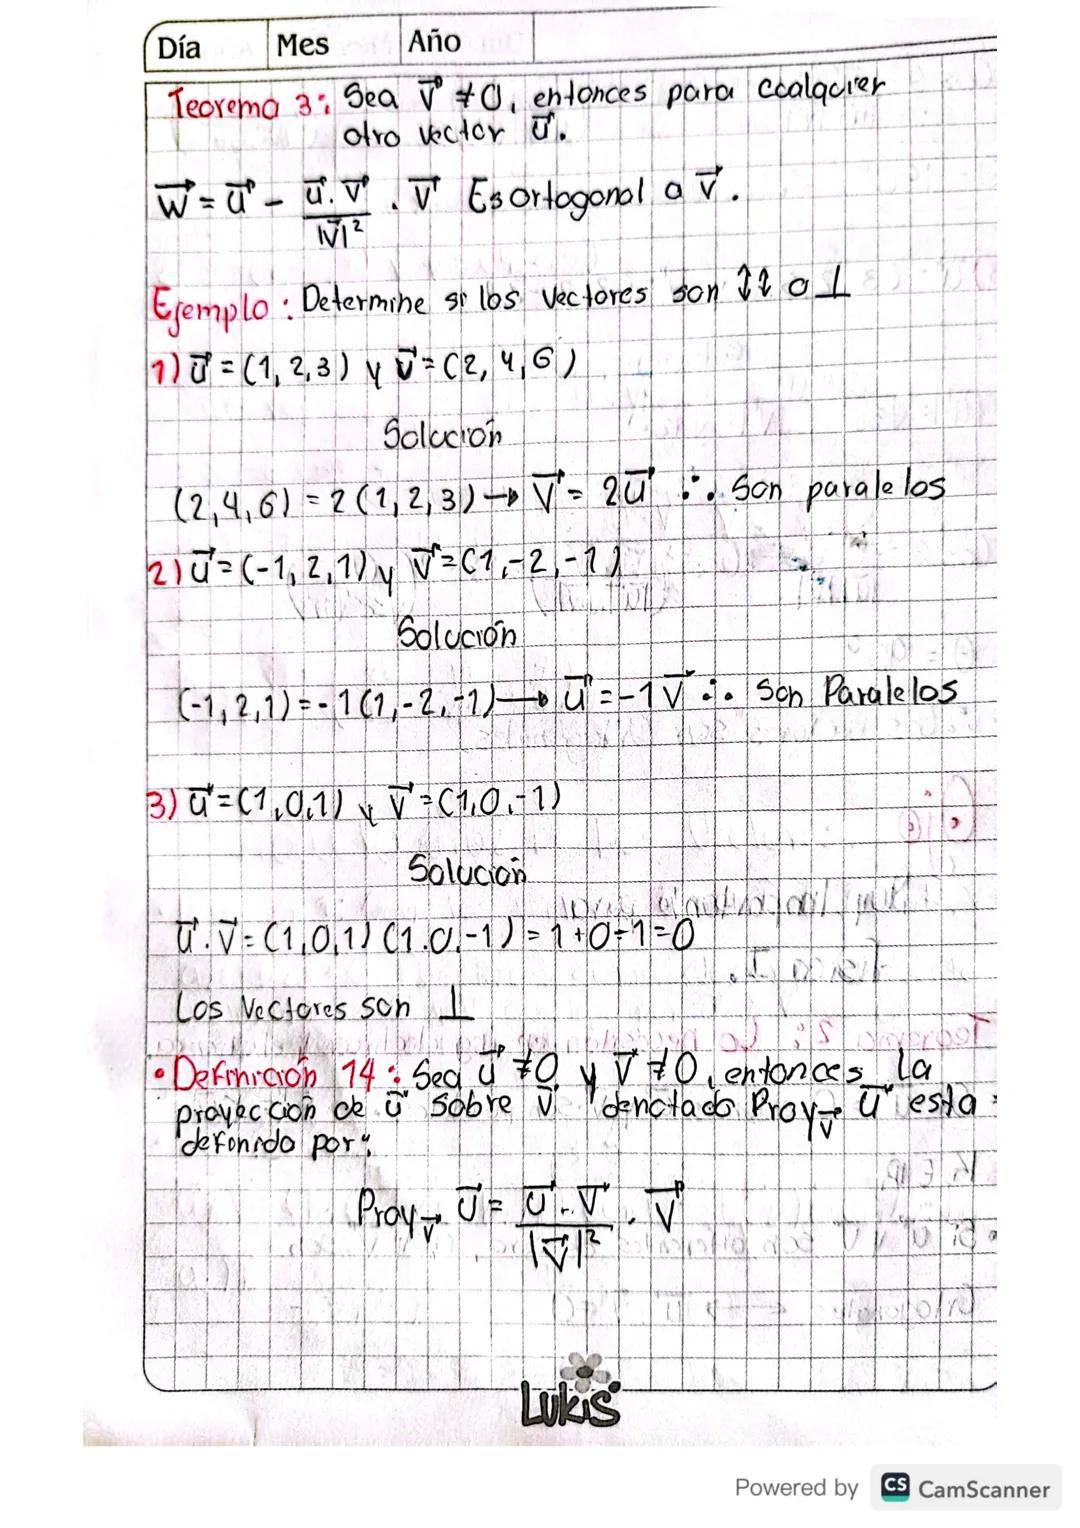 Día Mes Año
Teorema 3: Sea v⃗ ≠ 0, entonces para cualquier
otro vector u⃗.
w⃗ = u⃗ - (u⃗ . v⃗ / |v⃗|²) . v⃗ Es ortogonal a v⃗.
Ejemplo: Determine si los vectores son ↕↕ o ⊥
1) u⃗ = (1, 2, 3) y v⃗ = (2, 4, 6)
Solución
(2, 4, 6) = 2 (1, 2, 3) → v⃗ = 2u⃗ ∴ Son paralelos
2) u⃗ = (-1, 2, 1) y v⃗ = (1, -2, -1)
Solución
(-1, 2, 1) = -1 (1, -2, -1) → u⃗ = -1 v⃗ ∴ Son Paralelos
3) u⃗ = (1, 0, 1) y v⃗ = (1, 0, -1)
Solución
u⃗ . v⃗ = (1, 0, 1) (1. 0, -1) = 1 + 0 - 1 = 0
Los Vectores son ⊥
• Definición 14: Sea u⃗ ≠ 0 y v⃗ ≠ 0, entonces la
proyección de u⃗ sobre v⃗ denotado Proy v⃗ u⃗ esta
definido por:
Proy v⃗ u⃗ = (u⃗ . v⃗ / |v⃗|²) . v⃗
Lukis
Powered by CS CamScanner